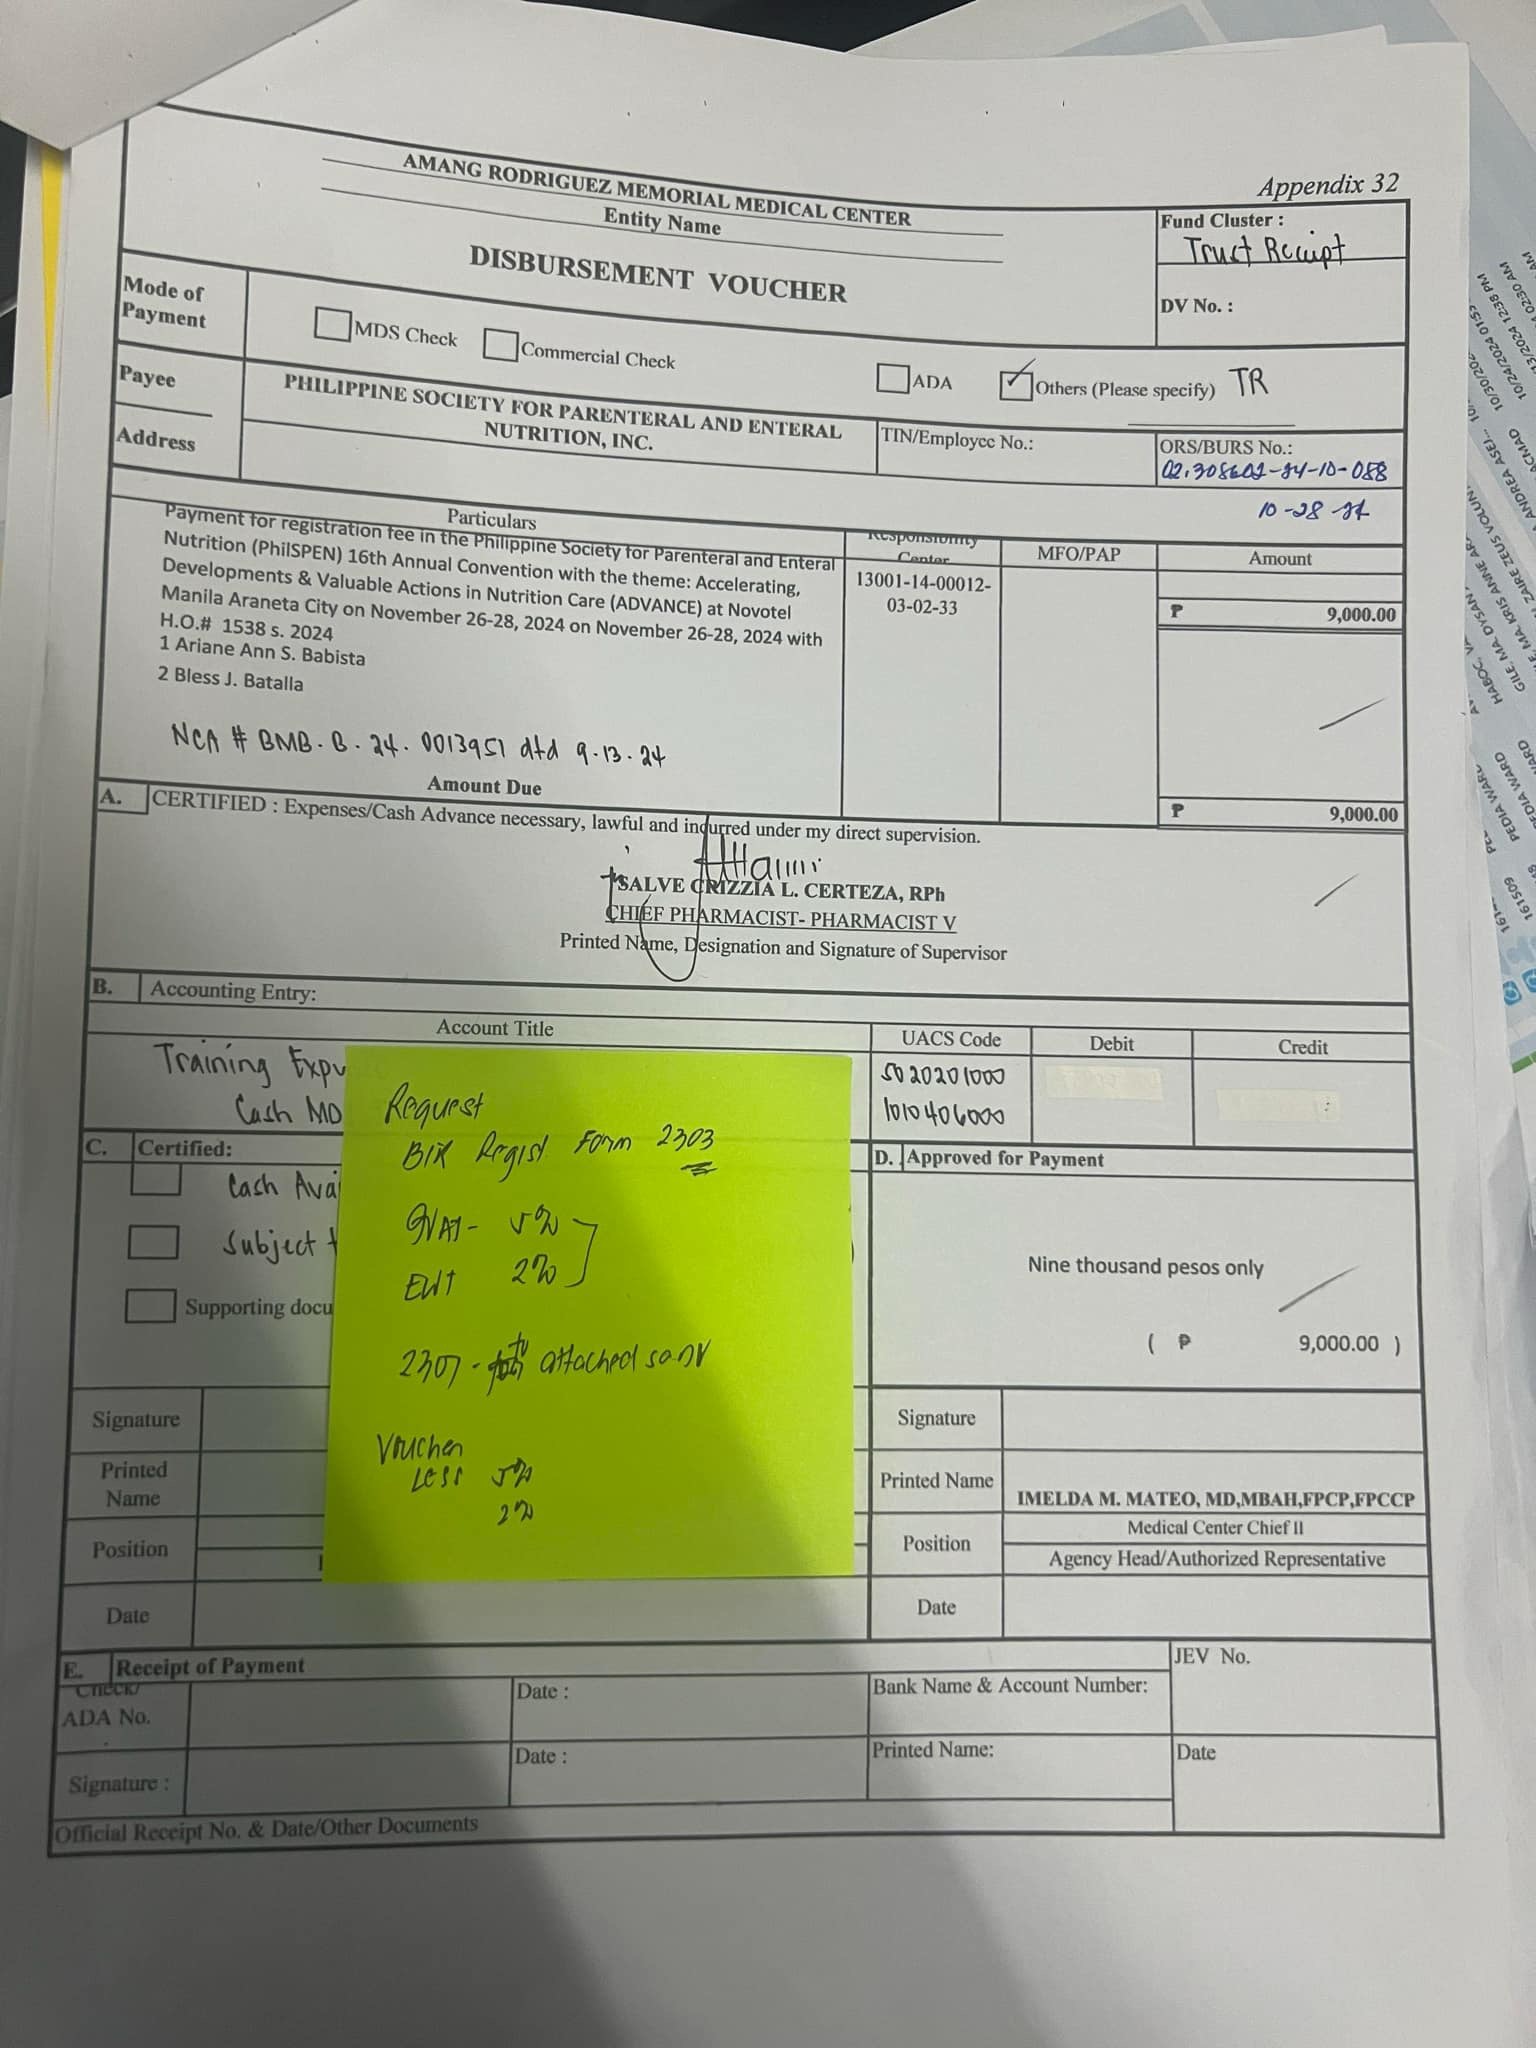 Appendix 32
AMANG RODRIGUEZ MEMORIAL MEDICAL CENTER
Entity Name
DISBURSEMENT VOUCHER
Fund Cluster :
Trust Receipt
DV No. :
Mode of Payment
MDS Check
Commercial Check
ADA
Others (Please specify) TR
Payee
PHILIPPINE SOCIETY FOR PARENTERAL AND ENTERAL
NUTRITION, INC.
TIN/Employee No.:
ORS/BURS No.:
10-28-24
Address
Particulars
Responsibility Center
MFO/PAP
Amount
Payment for registration fee in the Philippine Society for Parenteral and Enteral
Nutrition (PhilSPEN) 16th Annual Convention with the theme: Accelerating,
Developments & Valuable Actions in Nutrition Care (ADVANCE) at Novotel
Manila Araneta City on November 26-28, 2024 on November 26-28, 2024 with
H.O.# 1538 s. 2024
1 Ariane Ann S. Babista
2 Bless J. Batalla
13001-14-00012-
03-02-33
₱ 9,000.00
NCA # BMB. B. 24. 0013951 dtd 9.13.24
Amount Due
₱ 9,000.00
A. CERTIFIED : Expenses/Cash Advance necessary, lawful and incurred under my direct supervision.
SALVE CRIZZIA L. CERTEZA, RPh
CHIEF PHARMACIST- PHARMACIST V
Printed Name, Designation and Signature of Supervisor
B. Accounting Entry:
Account Title
UACS Code
Debit
Credit
Training Exp
5020201000
Cash MD
1010406000
C. Certified:
Cash Avai
Subject t
Supporting docu
Request
BIR Regist Form 2303
GVAT- 5%
EWT 2%
2307 - to attached sa DV
Voucher
Less 5%
2%
D. Approved for Payment
Nine thousand pesos only
( ₱ 9,000.00 )
Signature
Printed Name
Position
Date
Signature
Printed Name
IMELDA M. MATEO, MD,MBAH,FPCP,FPCCP
Position
Medical Center Chief II
Agency Head/Authorized Representative
Date
E. Receipt of Payment
JEV No.
Check/
ADA No.
Date :
Bank Name & Account Number:
Signature :
Date :
Printed Name:
Date
Official Receipt No. & Date/Other Documents